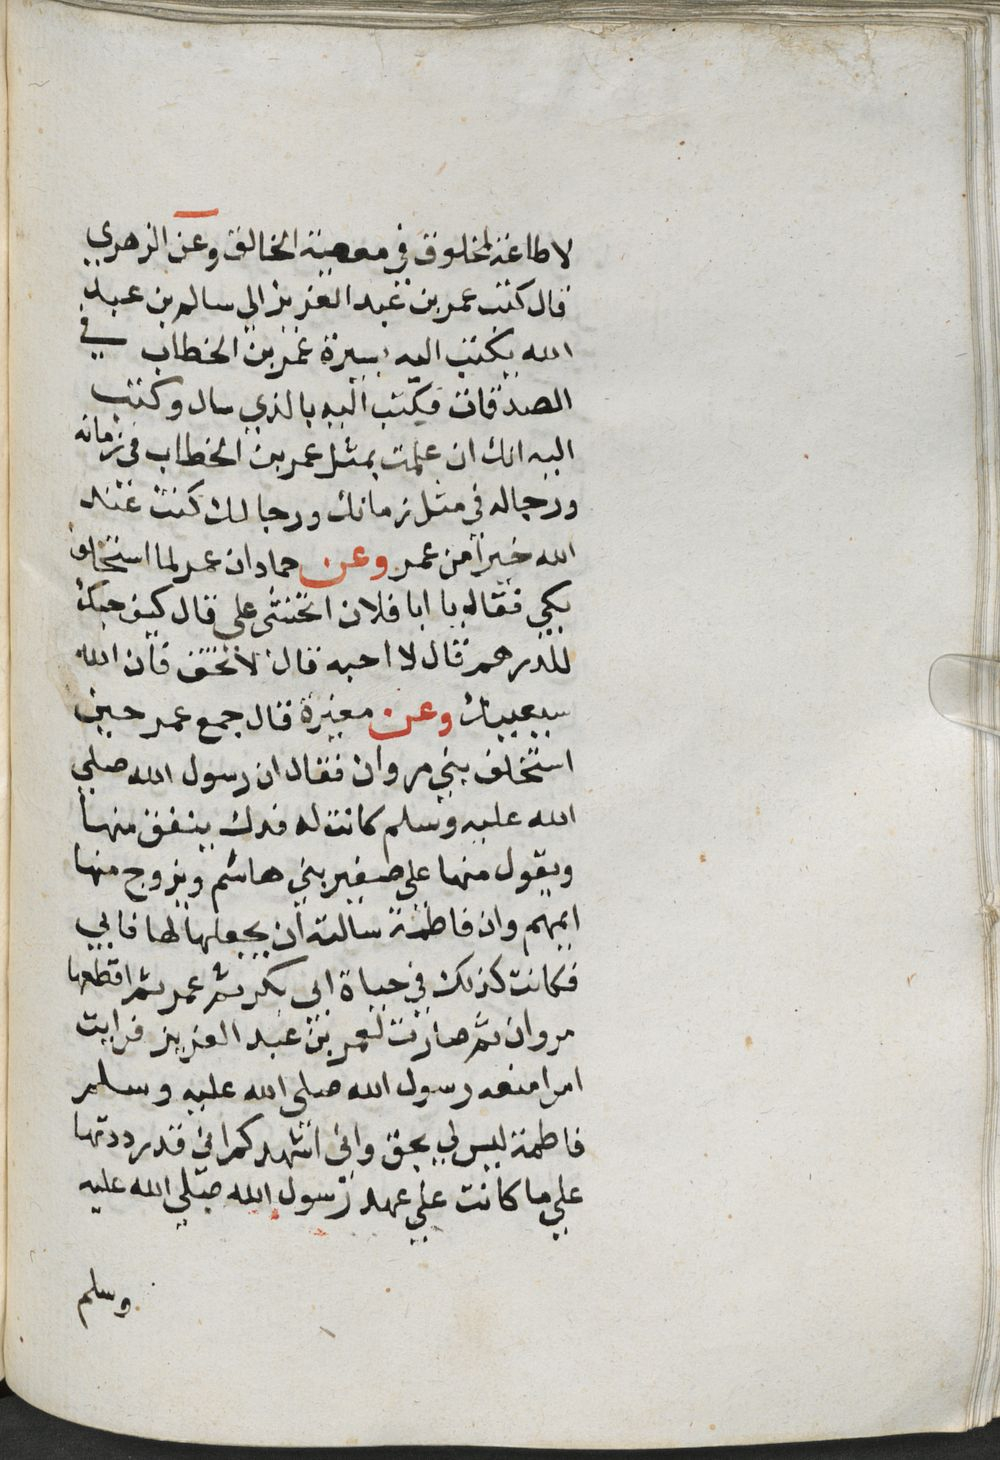 لا طاعة لمخلوق في معصية الخالق وعن الزهري
قال كتب عمر بن عبد العزيز الي سالم بن عبد
الله يكتب اليه بسيرة عمر بن الخطاب في
الصدقات فكتب اليه بالذي سال وكتب
اليه انك ان عملت بمثل عمر بن الخطاب في زمانه
ورجاله في مثل زمانك ورجالك كنت عند
الله خيرا من عمر وعن حماد ان عمر لما استخلف
بكي فقال يا ابا فلان اتخشى علي قال كيف حبك
للدرهم قال لا احبه قال لا تخف فان الله
سيعينك وعن مغيرة قال جمع عمر حين
استخلف بني مروان فقال ان رسول الله صلي
الله عليه وسلم كانت له فدك ينفق منها
ويقول منها على صغير بني هاشم ويزوج منها
ايمهم وان فاطمة سالته ان يجعلها لها فابي
فكانت كذلك في حياة ابي بكر ثم عمر ثم اقطعها
مروان ثم صارت لعمر بن عبد العزيز فرايت
امرا منعه رسول الله صلى الله عليه وسلم
فاطمة ليس لي بحق واني اشهدكم اني قد رددتها
علي ما كانت علي عهد رسول الله صلي الله عليه
وسلم